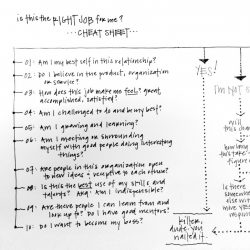 is this the RIGHT JOB for me?
··· CHEAT SHEET ···
01: Am I my best self in this relationship?
02: Do I believe in the product, organization
or service?
03: How does this job make me feel? great,
accomplished, satisfied?
04: Am I challenged to do and be my best?
05: Am I growing and learning?
06: Am I meeting or surrounding
myself with good people doing interesting
things?
07: Are people in this organization open
to new ideas & receptive to each other?
08: Is this the best use of my skills and
talents? AKA: Am I indispensible?
09: Are there people I can learn from and
look up to? Do I have good mentors?
10: Do I want to become my boss?
YES!
I'm NOT S
will
this
chan
how long
this take
figure
is there
somewhere
else
killer,
dude. you
nailed it